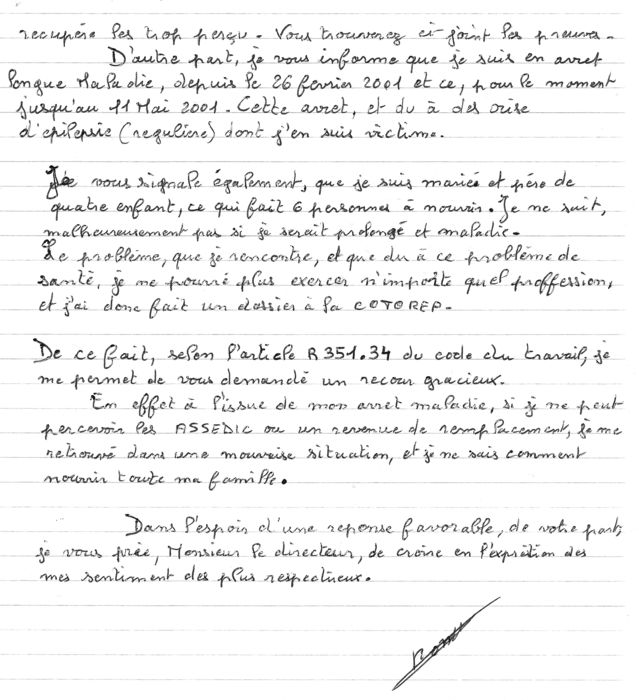 recupére les trop perçu. Vous trouverez ci-joint les preuves.
D'autre part, je vous informe que je suis en arret
longue Maladie, depuis le 26 fevrier 2001 et ce, pour le moment
jusqu'au 11 Mai 2001. Cette arret, et du à des crise
d'épilepsie (reguliere) dont j'en suis victime.
Je vous signale également, que je suis mariée et père de
quatre enfant, ce qui fait 6 personnes à nourrir. Je ne sait,
malheureusement pas si je serait prolongé et maladie.
Le problème, que je rencontre, et que du à ce problème de
santé, je ne pourré plus exercer n'importe quel proffession,
et j'ai donc fait un dossier à la COTOREP.
De ce fait, selon l'article R 351.34 du code du travail, je
me permet de vous demandé un recour gracieux.
En effet à l'issue de mon arret maladie, si je ne peut
percevoir les ASSEDIC ou un revenue de remplacement, je me
retrouvé dans une mauvaise situation, et je ne sais comment
nourrir toute ma famille.
Dans l'espoir d'une reponse favorable, de votre part,
je vous priée, Monsieur le directeur, de croire en l'exprétion des
mes sentiment des plus respectueux.